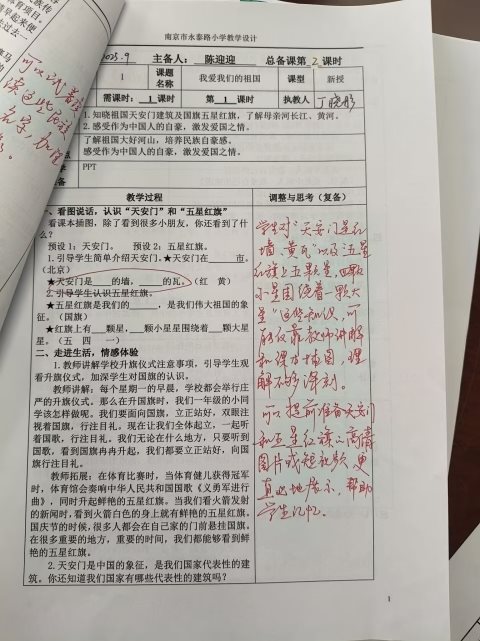 南京市永泰路小学教学设计
2025.9 主备人： 陈迎迎 总备课第 2 课时
1 课题名称 我爱我们的祖国 课型 新授
需课时：1课时 第 1 课时 执教人 丁晓彤
1.知晓祖国天安门建筑及国旗五星红旗，了解母亲河长江、黄河。
2.感受作为中国人的自豪，激发爱国之情。
了解祖国大好河山，培养民族自豪感、
感受作为中国人的自豪，激发爱国之情。
PPT
教学过程 调整与思考（复备）
一、看图说话，认识“天安门”和“五星红旗”
看课本插图，除了看到很多小朋友，你还看到了什么？
预设 1：天安门。 预设 2：五星红旗。
1.引导学生简单介绍天安门。★天安门在____市。
（北京）
★天安门是____的墙，____的瓦。（红 黄）
2.引导学生认识五星红旗。
★五星红旗是我们的____，是我们伟大祖国的象征。（国旗）
★红旗上有__颗星，__颗小星星围绕着__颗大星星。（五 四 一）
二、走进生活，情感体验
1.教师讲解学校升旗仪式注意事项，引导学生观
看升旗仪式，加深学生对国旗的认识。
教师讲解：每个星期的早晨，学校都会举行庄
严的升旗仪式。那么在升国旗时，我们一年级的小同
学该怎样做呢。我们要面向国旗，立正站好，双眼注
视着国旗，行注目礼。现在让我们全体起立，一起听
着国歌，行注目礼。我们无论在什么地方，只要听到
国歌，看到国旗冉冉升起，我们都要立正站好，向国
旗行注目礼。
教师拓展：在体育比赛时，当体育健儿获得冠军
时，体育馆会奏响中华人民共和国国歌《义勇军进行
曲》，同时升起鲜艳的五星红旗。当我们看火箭发射
的新闻时，看到火箭白色的身上就有鲜艳的五星红旗。
国庆节的时候，很多人都会在自己家的门前悬挂国旗。
在很多重要的地方，重要的时间，我们都能够看到鲜
艳的五星红旗。
2.天安门是中国的象征，是我们国家代表性的建
筑。你还知道我们国家有哪些代表性的建筑吗？
学生对“天安门是红
墙、黄瓦”以及“五星
红旗上五颗星，四颗
小星围绕着一颗大
星”这些知识，可
能仅靠教师讲解
和课本插图，理
解不够深刻。
可以提前准备天安门
和五星红旗的高清
图片或短视频，更
直观地展示，帮助
学生记忆。
1